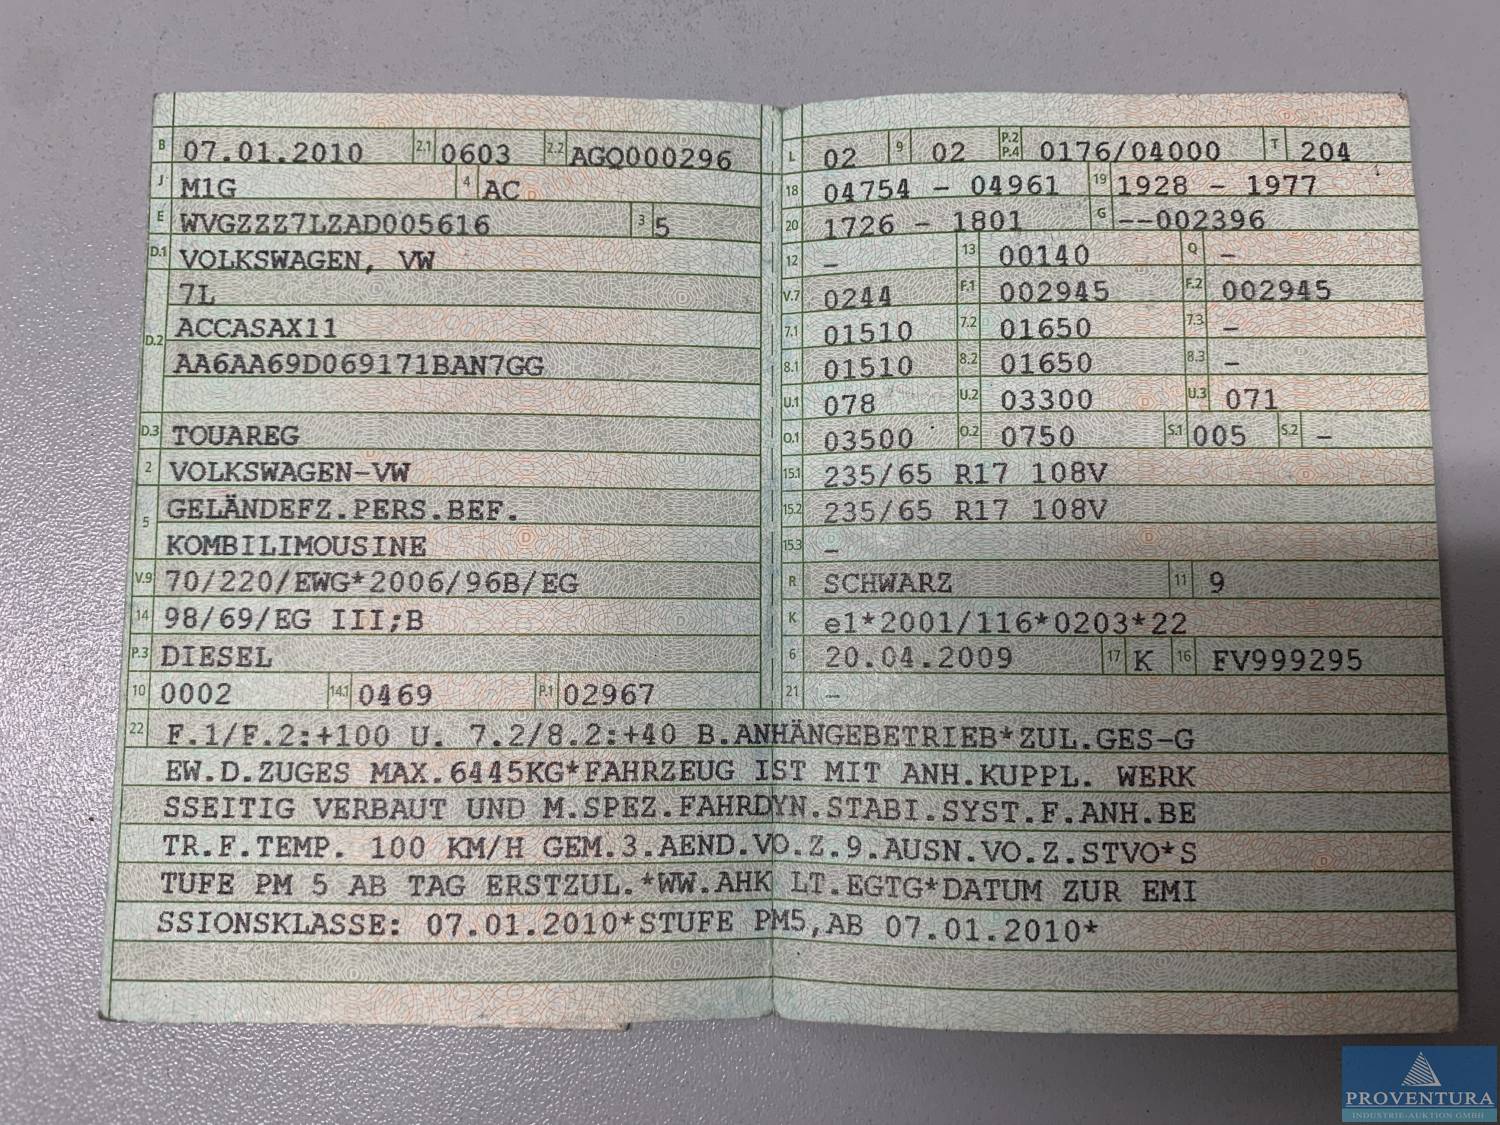 B 07.01.2010 2.1 0603 2.2 AGQ000296
J M1G 4 AC
E WVGZZZ7LZAD005616 3 5
D.1 VOLKSWAGEN, VW
7L
D.2 ACCASAX11
AA6AA69D069171BAN7GG
D.3 TOUAREG
2 VOLKSWAGEN-VW
5 GELÄNDEFZ.PERS.BEF.
KOMBILIMOUSINE
V.9 70/220/EWG*2006/96B/EG
14 98/69/EG III;B
P.3 DIESEL
10 0002 14.1 0469 P.1 02967
L 02 9 02 P.2 P.4 0176/04000 T 204
18 04754 - 04961 19 1928 - 1977
20 1726 - 1801 G --002396
12 - 13 00140 Q -
V.7 0244 F.1 002945 F.2 002945
7.1 01510 7.2 01650 7.3 -
8.1 01510 8.2 01650 8.3 -
U.1 078 U.2 03300 U.3 071
O.1 03500 O.2 0750 S.1 005 S.2 -
15.1 235/65 R17 108V
15.2 235/65 R17 108V
15.3 -
R SCHWARZ 11 9
K e1*2001/116*0203*22
6 20.04.2009 17 K 16 FV999295
21 -
22 F.1/F.2:+100 U. 7.2/8.2:+40 B.ANHÄNGEBETRIEB*ZUL.GES-G
EW.D.ZUGES MAX.6445KG*FAHRZEUG IST MIT ANH.KUPPL. WERK
SSEITIG VERBAUT UND M.SPEZ.FAHRDYN.STABI.SYST.F.ANH.BE
TR.F.TEMP. 100 KM/H GEM.3.AEND.VO.Z.9.AUSN.VO.Z.STVO*S
TUFE PM 5 AB TAG ERSTZUL.*WW.AHK LT.EGTG*DATUM ZUR EMI
SSIONSKLASSE: 07.01.2010*STUFE PM5,AB 07.01.2010*
PROVENTURA
INDUSTRIE-AUKTION GMBH